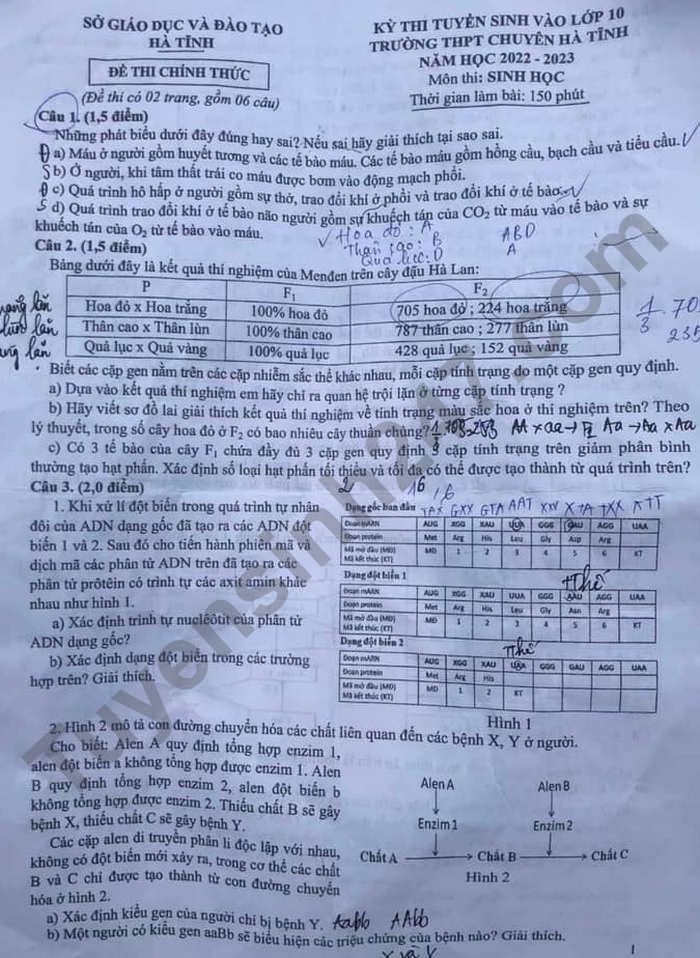 SỞ GIÁO DỤC VÀ ĐÀO TẠO
HÀ TĨNH
ĐỀ THI CHÍNH THỨC
(Đề thi có 02 trang, gồm 06 câu)
KỲ THI TUYỂN SINH VÀO LỚP 10
TRƯỜNG THPT CHUYÊN HÀ TĨNH
NĂM HỌC 2022 - 2023
Môn thi: SINH HỌC
Thời gian làm bài: 150 phút
Câu 1. (1,5 điểm)
Những phát biểu dưới đây đúng hay sai? Nếu sai hãy giải thích tại sao sai.
Đ a) Máu ở người gồm huyết tương và các tế bào máu. Các tế bào máu gồm hồng cầu, bạch cầu và tiểu cầu.
S b) Ở người, khi tâm thất trái co máu được bơm vào động mạch phổi.
Đ c) Quá trình hô hấp ở người gồm sự thở, trao đổi khí ở phổi và trao đổi khí ở tế bào.
S d) Quá trình trao đổi khí ở tế bào não người gồm sự khuếch tán của CO₂ từ máu vào tế bào và sự
khuếch tán của O₂ từ tế bào vào máu.
Hoa đỏ: A
Thân cao: B
Quả lục: D
ABD
A
Câu 2. (1,5 điểm)
Bảng dưới đây là kết quả thí nghiệm của Menđen trên cây đậu Hà Lan:
P F₁ F₂
Hoa đỏ x Hoa trắng 100% hoa đỏ 705 hoa đỏ ; 224 hoa trắng
Thân cao x Thân lùn 100% thân cao 787 thân cao ; 277 thân lùn
Quả lục x Quả vàng 100% quả lục 428 quả lục ; 152 quả vàng
trắng lặn
lùn lặn
vàng lặn
1/3 . 70
235
Biết các cặp gen nằm trên các cặp nhiễm sắc thể khác nhau, mỗi cặp tính trạng do một cặp gen quy định.
a) Dựa vào kết quả thí nghiệm em hãy chỉ ra quan hệ trội lặn ở từng cặp tính trạng ?
b) Hãy viết sơ đồ lai giải thích kết quả thí nghiệm về tính trạng màu sắc hoa ở thí nghiệm trên? Theo
lý thuyết, trong số cây hoa đỏ ở F₂ có bao nhiêu cây thuần chủng?
AA x aa → F₁ Aa → Aa x Aa
c) Có 3 tế bào của cây F₁ chứa đầy đủ 3 cặp gen quy định 3 cặp tính trạng trên giảm phân bình
thường tạo hạt phấn. Xác định số loại hạt phấn tối thiểu và tối đa có thể được tạo thành từ quá trình trên?
2 16 , 6
Câu 3. (2,0 điểm)
1. Khi xử lí đột biến trong quá trình tự nhân
đôi của ADN dạng gốc đã tạo ra các ADN đột
biến 1 và 2. Sau đó cho tiến hành phiên mã và
dịch mã các phân tử ADN trên đã tạo ra các
phân tử prôtêin có trình tự các axit amin khác
nhau như hình 1.
a) Xác định trình tự nuclêôtit của phân tử
ADN dạng gốc?
b) Xác định dạng đột biến trong các trường
hợp trên? Giải thích.
Dạng gốc ban đầu
TAX GXX GTA AAT XXX XTA TXX ATT
Đoạn mARN AUG XGG XAU UUA GGG GAU AGG UAA
Đoạn protein Met Arg His Leu Gly Asp Arg
Mã mở đầu (MĐ)
Mã kết thúc (KT) MĐ 1 2 3 4 5 6 KT
Dạng đột biến 1
Thế
Đoạn mARN AUG XGG XAU UUA GGG AAU AGG UAA
Đoạn protein Met Arg His Leu Gly Asn Arg
Mã mở đầu (MĐ)
Mã kết thúc (KT) MĐ 1 2 3 4 5 6 KT
Dạng đột biến 2
Thế
Đoạn mARN AUG XGG XAU UGA GGG GAU AGG UAA
Đoạn protein Met Arg His
Mã mở đầu (MĐ)
Mã kết thúc (KT) MĐ 1 2 KT
Hình 1
2. Hình 2 mô tả con đường chuyển hóa các chất liên quan đến các bệnh X, Y ở người.
Cho biết: Alen A quy định tổng hợp enzim 1,
alen đột biến a không tổng hợp được enzim 1. Alen
B quy định tổng hợp enzim 2, alen đột biến b
không tổng hợp được enzim 2. Thiếu chất B sẽ gây
bệnh X, thiếu chất C sẽ gây bệnh Y.
Các cặp alen di truyền phân li độc lập với nhau,
không có đột biến mới xảy ra, trong cơ thể các chất
B và C chỉ được tạo thành từ con đường chuyển
hóa ở hình 2.
Alen A Alen B
Enzim 1 Enzim 2
Chất A Chất B Chất C
Hình 2
a) Xác định kiểu gen của người chỉ bị bệnh Y. Aabb AAbb
b) Một người có kiểu gen aaBb sẽ biểu hiện các triệu chứng của bệnh nào? Giải thích.
X và Y
1
Tuyensinh247.com